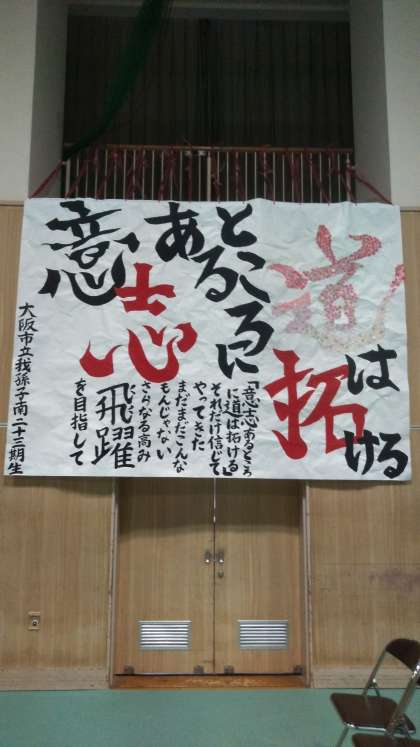 意志
ある
ところに
道は
拓ける
「意志あるところ
に道は拓ける」
それだけ信じて
やってきた
まだまだこんな
もんじゃない
さらなる高み
飛躍
を目指して
大阪市立我孫子南二十三期生